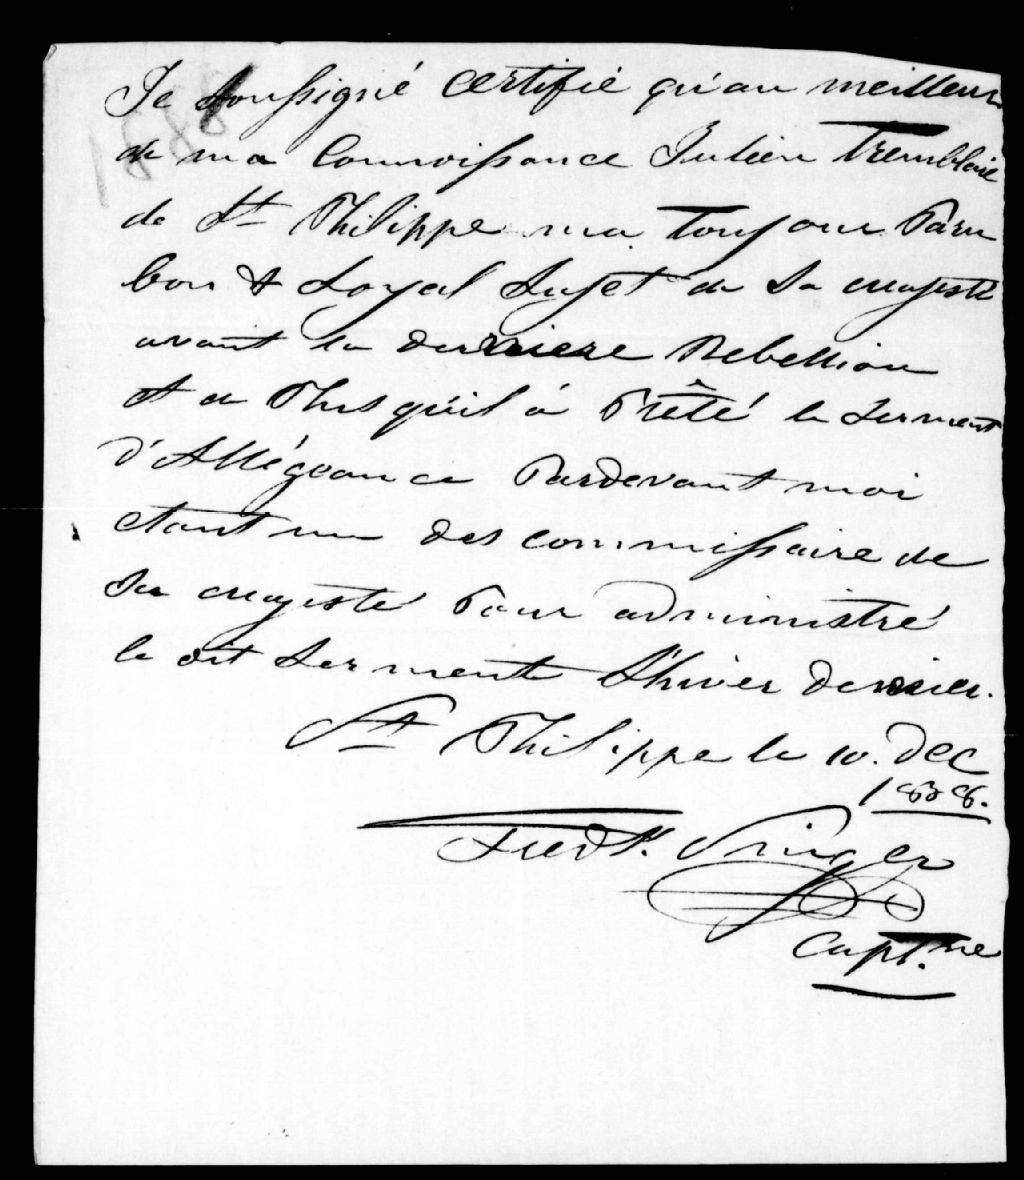 Je Soussigné Certifié qu'au meilleur
de ma Connoissance Julien Tremblaie
de St Philippe ma toujour Paru
bon & Loyal Sujet de Sa majesté
avant la derniere Rebellion
et de Plus qu'il à Prêté le Serment
d'Allégeance Pardevant moi
etant un des commissaire de
Sa majesté Pour administré
le dit Serment l'hiver dernier.
St Philippe le 10. Dec
1838.
Fredk. Singer
Capt.ne